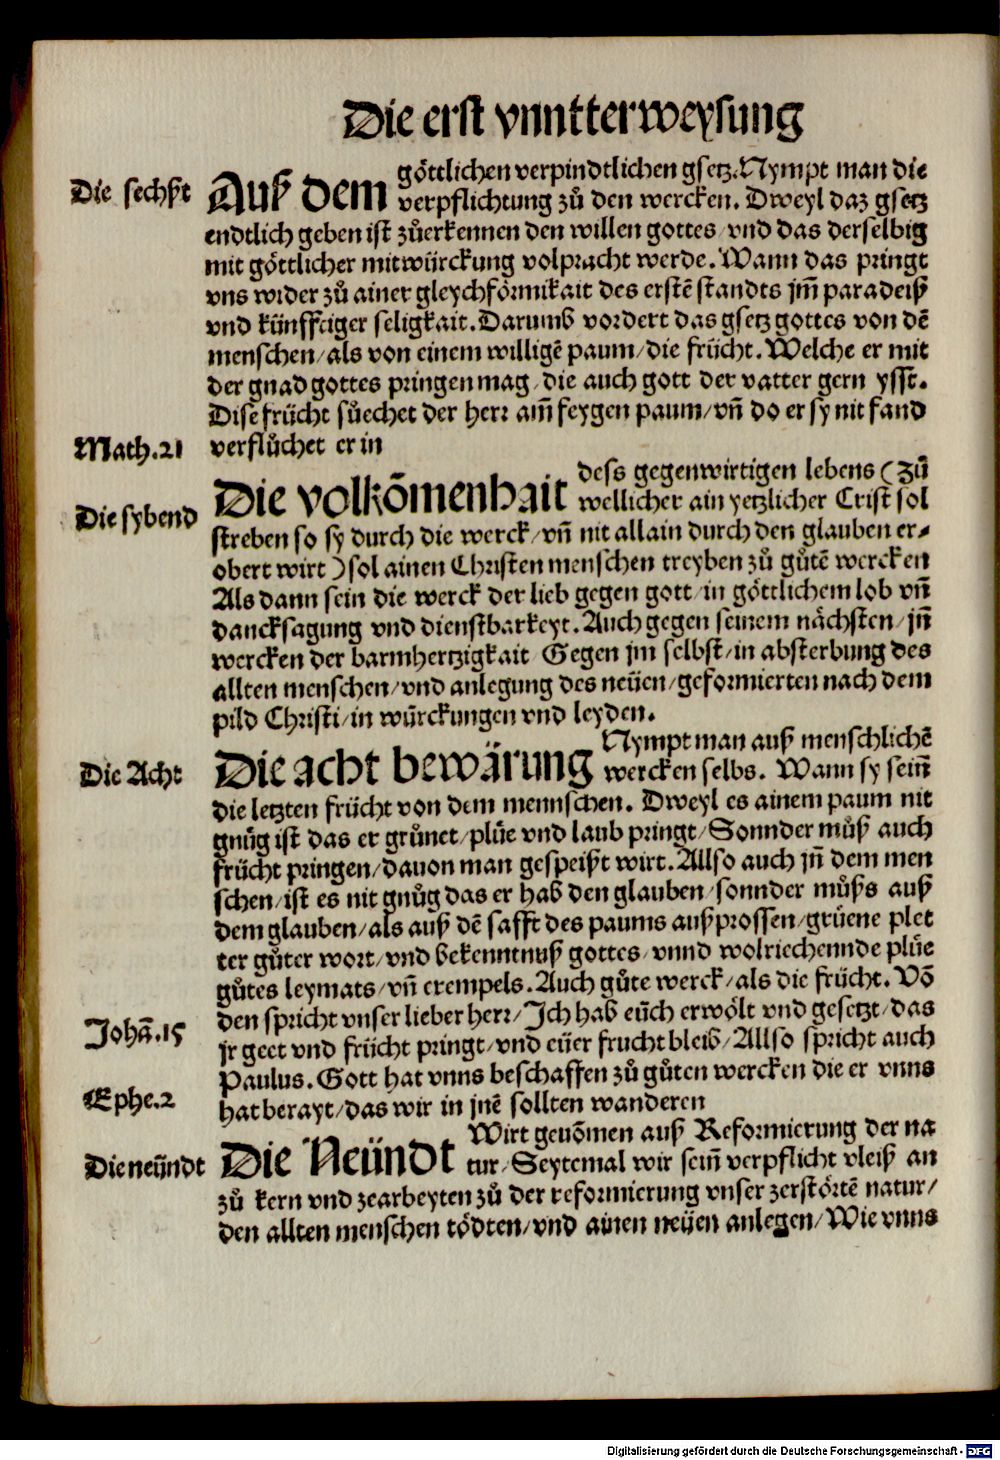 Die erst vnntterweysung
Die sechßt
Auß dem göttlichen verpindtlichen gsetz. Nympt man die
verpflichtung zů den wercken. Dweyl daz gsetz
endtlich geben ist zůerkennen den willen gottes/ vnd das derselbig
mit göttlicher mitwürckung volpracht werde. Wann das pringt
vns wider zů ainer gleychförmikait des erstē standts jm̄ paradeiß
vnd künfftiger seligkait. Darumb vordert das gsetz gottes von dē
menschen/ als von einem willigē paum/ die frücht. Welche er mit
der gnad gottes pringen mag/ die auch gott der vatter gern ysst.
Dise frücht sůechet der herr am̄ feygen paum/ vn̄ do er sy nit fand
Math.21
verflůchet er in
Die sybend
Die volkōmenhait dess gegenwirtigen lebens (zů
wellicher ain yetzlicher Crist sol
streben so sy durch die werck/ vn̄ nit allain durch den glauben er-
obert wirt) sol ainen Christen menschen treyben zů gůtē wercken
Als dann sein die werck der lieb gegen gott/ in göttlichem lob vn̄
dancksagung vnd dienstbarkeyt. Auch gegen seinem nächsten/ jn̄
wercken der barmhertzigkait/ Gegen jm selbst/ in absterbung des
allten menschen/ vnd anlegung des neüen/ geformierten nach dem
pild Christi/ in würckungen vnd leyden.
Die Acht
Die acht bewärung Nympt man auß menschlichē
wercken selbs. Wann sy sein̄
die letzten frücht von dem mennschen. Dweyl es ainem paum nit
gnůg ist das er grůnet/ plüe vnd laub pringt/ Sonnder můß auch
frücht pringen/ dauon man gespeißt wirt. Allso auch jn̄ dem men
schen/ ist es nit gnůg das er hab den glauben/ sonnder můßs auß
dem glauben/ als auß dē safft des paums außprossen/ grüene plet
ter gůter wort/ vnd bekenntnuß gottes/ vnnd wolriechennde plüe
gůtes leymats/ vn̄ exempels. Auch gůte werck/ als die frücht. Vō
Johā.15
den spricht vnser lieber herr/ Ich hab eüch erwölt vnd gesetzt/ das
jr geet vnd frücht pringt/ vnd eüer frucht bleib/ Allso spricht auch
Paulus. Gott hat vnns beschaffen zů gůten wercken die er vnns
Ephe.2
hat berayt/ das wir in jnē sollten wanderen
Die neündt
Die Neündt Wirt genōmen auß Reformierung der na
tur/ Seytemal wir sein̄ verpflicht vleiß an
zů kern vnd zearbeyten zů der reformierung vnser zerstörtē natur/
den allten menschen tödten/ vnd ainen neüen anlegen/ Wie vnns
Digitalisierung gefördert durch die Deutsche Forschungsgemeinschaft - DFG